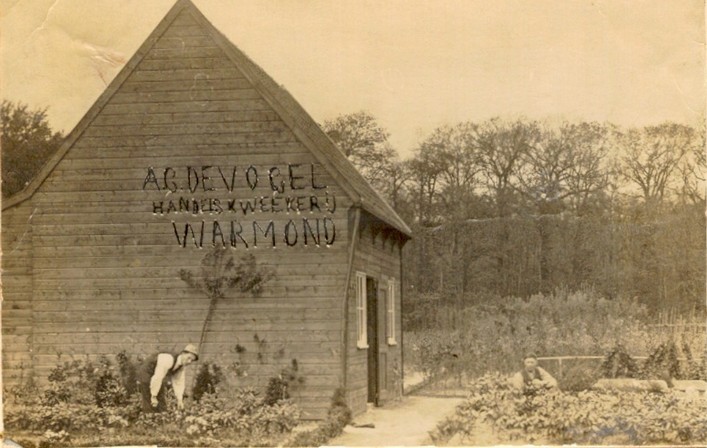 A.G. DE VOGEL
HANDELSKWEEKERIJ
WARMOND